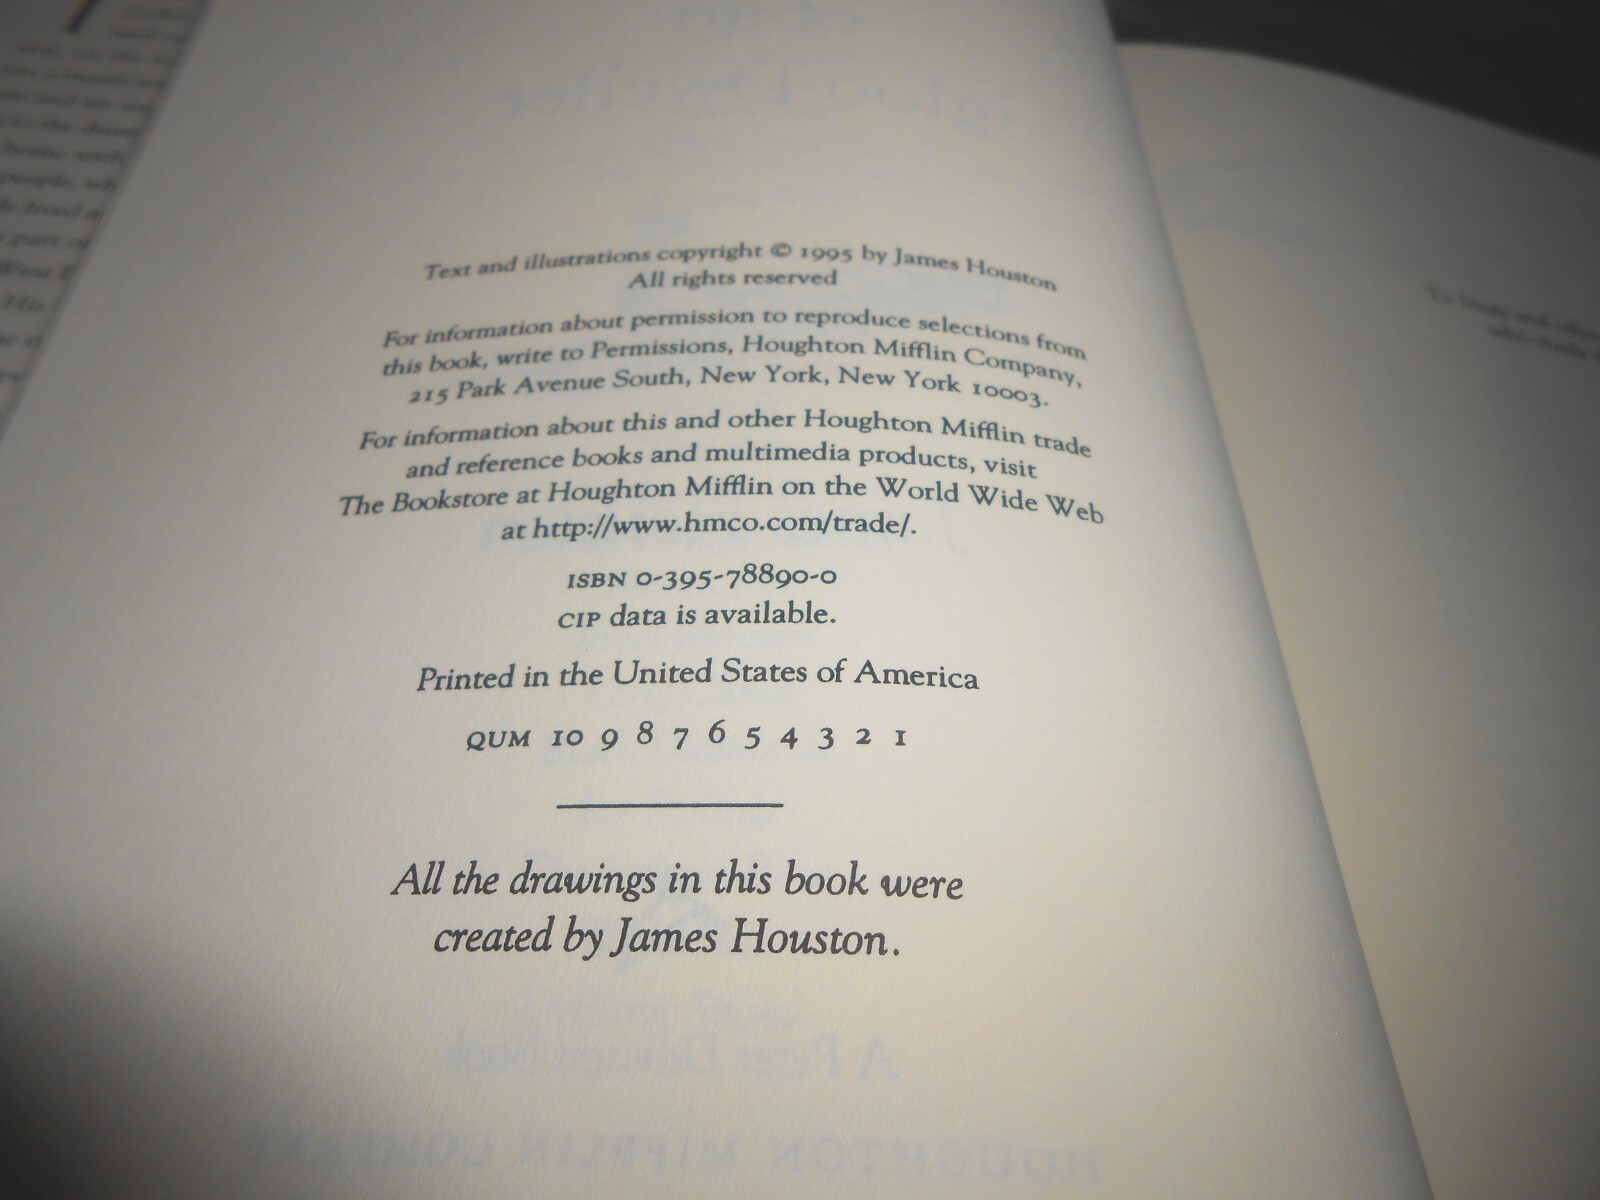 Text and illustrations copyright © 1995 by James Houston
All rights reserved
For information about permission to reproduce selections from
this book, write to Permissions, Houghton Mifflin Company,
215 Park Avenue South, New York, New York 10003.
For information about this and other Houghton Mifflin trade
and reference books and multimedia products, visit
The Bookstore at Houghton Mifflin on the World Wide Web
at http://www.hmco.com/trade/.
ISBN 0-395-78890-0
CIP data is available.
Printed in the United States of America
QUM 10 9 8 7 6 5 4 3 2 1
All the drawings in this book were
created by James Houston.